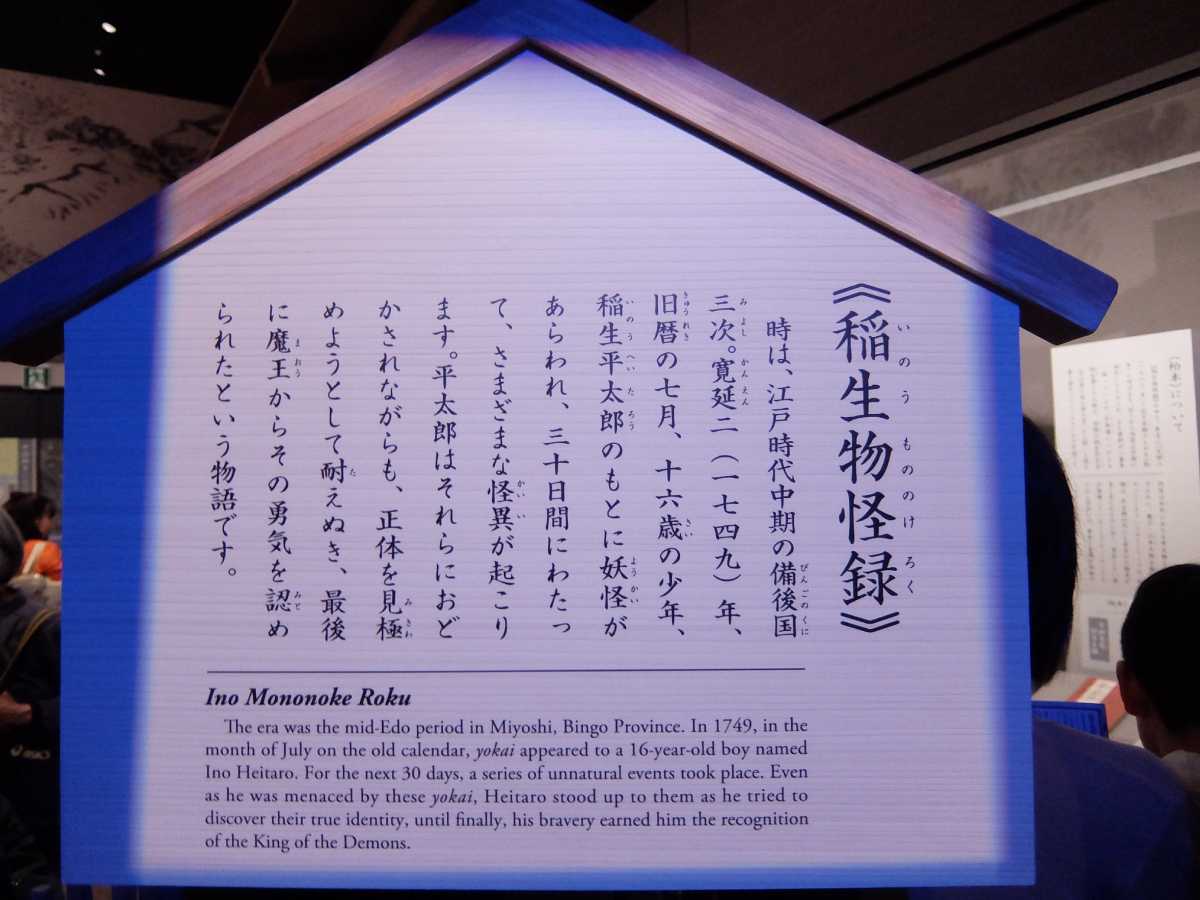 《稲生物怪録》
いのうもののけろく
時は、江戸時代中期の備後国
びんごのくに
三次。寛延二（一七四九）年、
みよし かんえん
旧暦の七月、十六歳の少年、
きゅうれき さい
稲生平太郎のもとに妖怪が
いのうへいたろう ようかい
あらわれ、三十日間にわたっ
て、さまざまな怪異が起こり
かいい
ます。平太郎はそれらにおど
かされながらも、正体を見極
みきわ
めようとして耐えぬき、最後
た
に魔王からその勇気を認め
まおう みと
られたという物語です。
Ino Mononoke Roku
The era was the mid-Edo period in Miyoshi, Bingo Province. In 1749, in the
month of July on the old calendar, yokai appeared to a 16-year-old boy named
Ino Heitaro. For the next 30 days, a series of unnatural events took place. Even
as he was menaced by these yokai, Heitaro stood up to them as he tried to
discover their true identity, until finally, his bravery earned him the recognition
of the King of the Demons.
asics